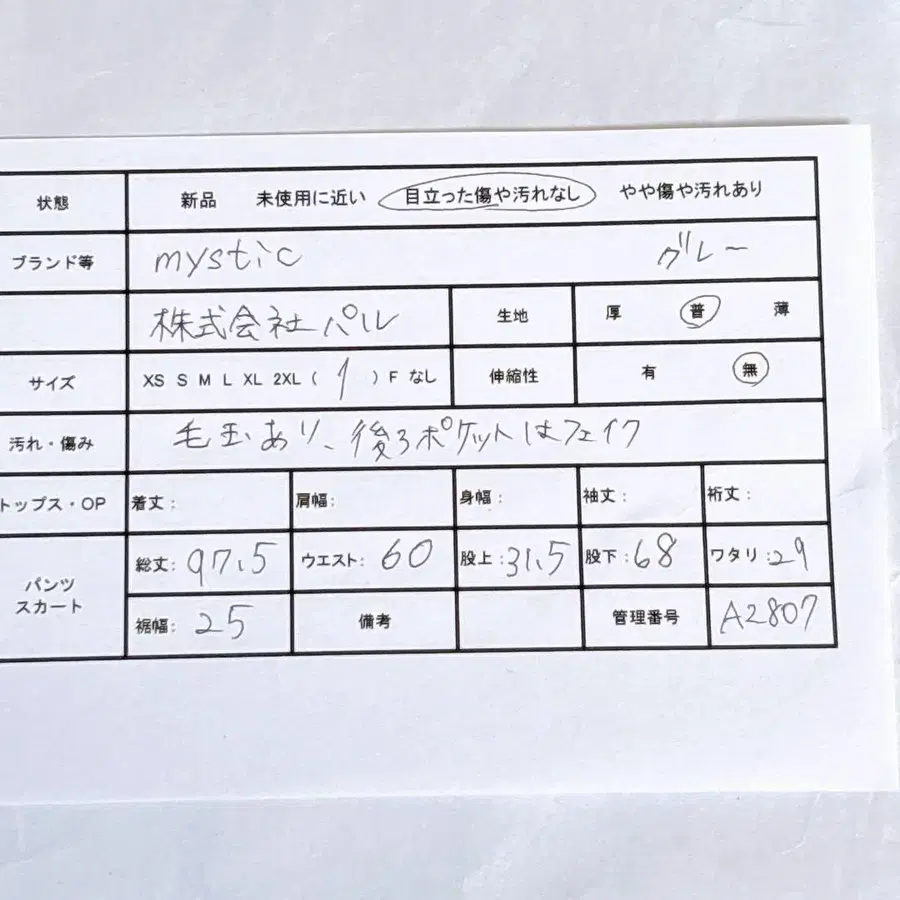 状態 新品 未使用に近い 目立った傷や汚れなし やや傷や汚れあり
ブランド等 mystic グレー
株式会社パル 生地 厚 普 薄
サイズ XS S M L XL 2XL ( 1 ) F なし 伸縮性 有 無
汚れ・傷み 毛玉あり、後ろポケットはフェイク
トップス・OP 着丈: 肩幅: 身幅: 袖丈: 裄丈:
パンツ スカート 総丈: 97.5 ウエスト: 60 股上: 31.5 股下: 68 ワタリ: 29
裾幅: 25 備考 管理番号 A2807